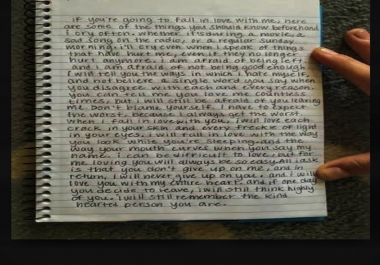 if you're going to fall in love with me, here
are some of the things you should know beforehand
I cry often, whether its during a movie, a
sad song on the radio, or a regular sunday
morning. i'll cry even when I speak of things
that have hurt me, even if they no longer
hurt anymore. i am afraid of being left
and i am afraid of not being good enough.
I will tell you the ways in which i hate myself,
and not believe a single word you say when
you disagree with each and every reason.
you can tell me you love me countless
times, but i will still be afraid of you leaving
me. Don't blame yourself. I have to expect
the worst, because I always get the worst.
when i fall in love with you, i will love each
crack in your skin and every freckle of light
in your eyes. i will fall in love with the way
you look while you're sleeping and the
way your mouth curves when you say my
name. I can be difficult to love, but for
me, loving you will always be so easy. All i ask
is that you don't give up on me, and in
return, I will never give up on you. and i will
love you with my entire heart, and if one day
you decide to leave, i will still think highly
of you. i will still remember the kind
hearted person you are.